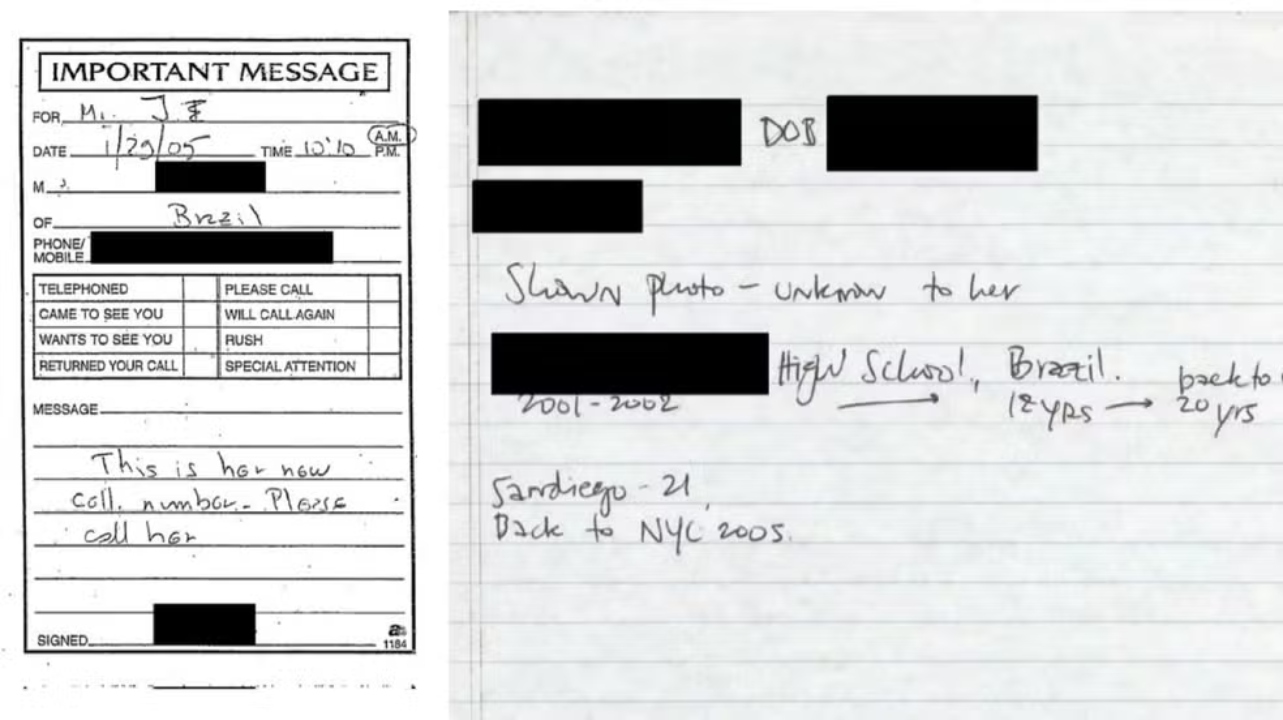 IMPORTANT MESSAGE
FOR Mr. J E
DATE 1/29/05 TIME 10:10 A.M.
P.M.
M s.
OF Brazil
PHONE/
MOBILE
TELEPHONED PLEASE CALL
CAME TO SEE YOU WILL CALL AGAIN
WANTS TO SEE YOU RUSH
RETURNED YOUR CALL SPECIAL ATTENTION
MESSAGE
This is her new
cell. number. Please
call her
SIGNED
1184
DOB
Shown photo - unknown to her
High School, Brazil. back to
2001-2002 12 yrs → 20 yrs
Sandiego - 21
Back to NYC 2005.